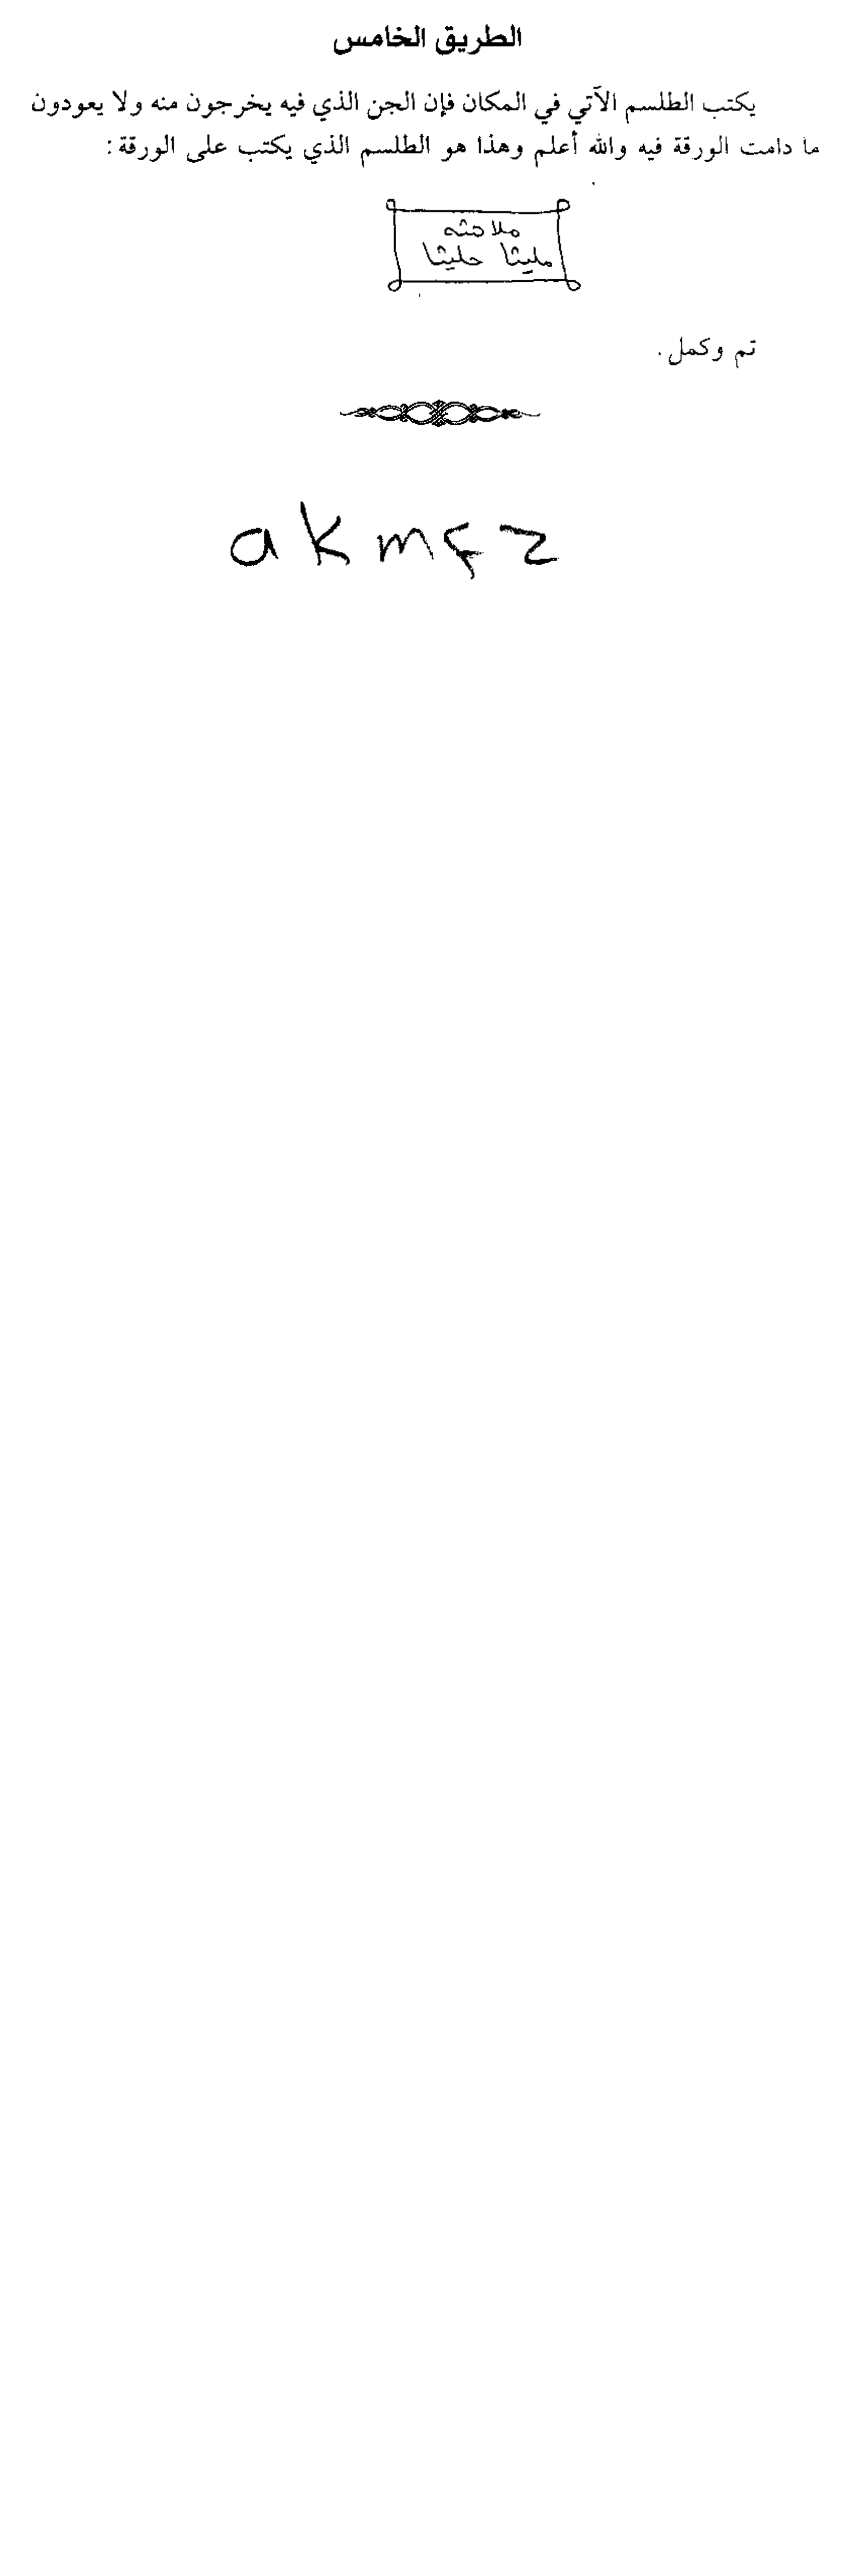 الطريق الخامس
يكتب الطلسم الآتي في المكان فإن الجن الذي فيه يخرجون منه ولا يعودون
ما دامت الورقة فيه والله أعلم وهذا هو الطلسم الذي يكتب على الورقة:
مليثا حليثا
تم وكمل.
akm